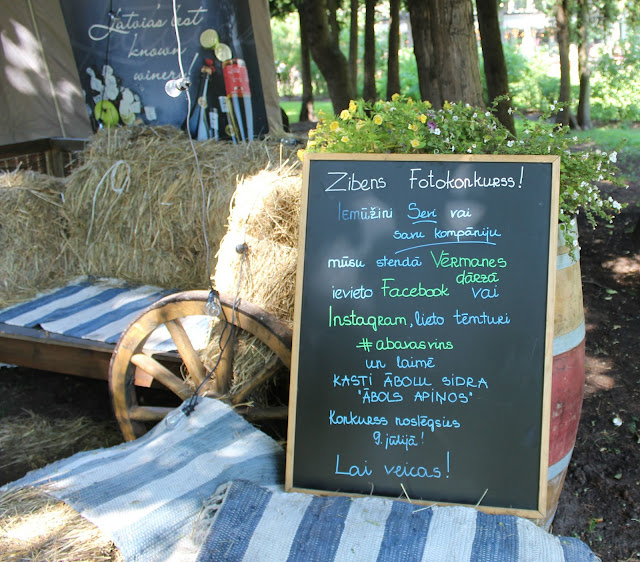 Latvia's best
known
winery
Zibens Fotokonkurss!
Iemūžini Sevi vai
savu kompāniju
mūsu stendā Vērmanes
dārzā
ievieto Facebook vai
Instagram, lieto tēmturi
#abavasvins
un laimē
KASTI ĀBOLU SIDRA
"ĀBOLS APIŅOS"
Konkurss noslēgsies
9. jūlijā!
Lai veicas!